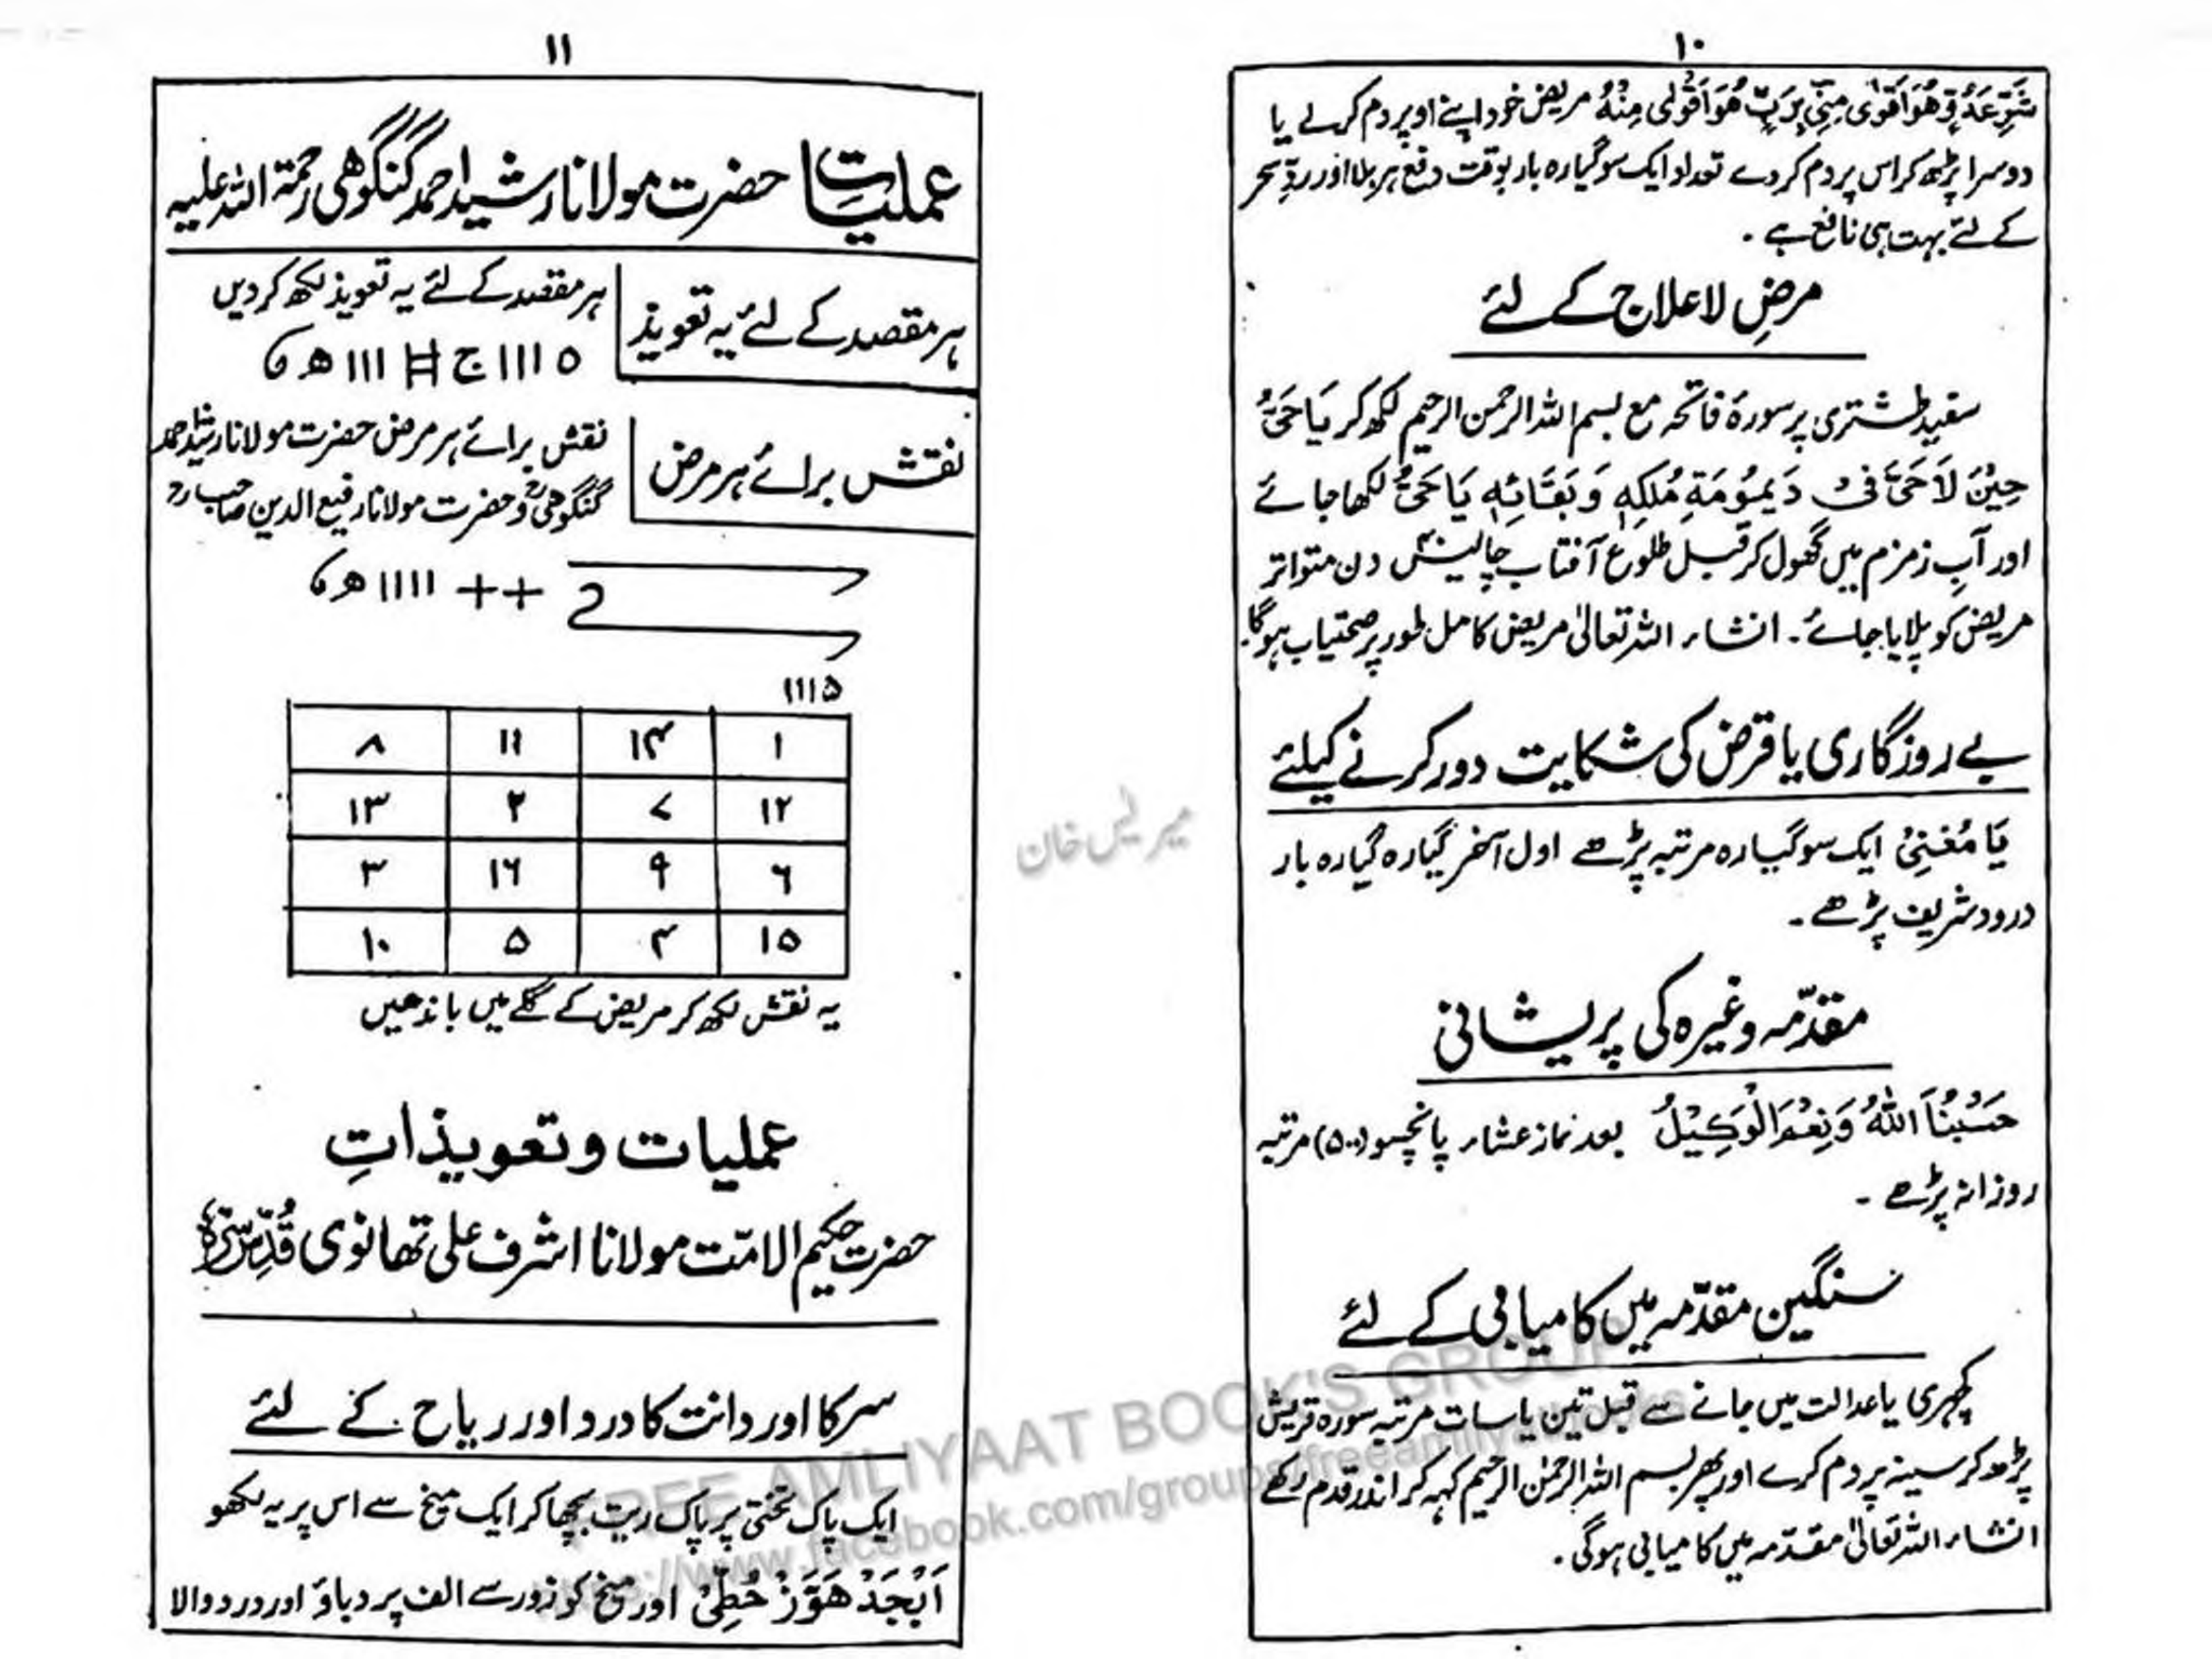 ۱۰
مریض خود اپنے اوپر دم کرلے یا
دوسرا پڑھ کر اس پر دم کردے تعداد ایک سو گیارہ بار بوقت دفع ہر بلا اور ردِّ سحر
کے لئے بہت ہی نافع ہے ۔
مرضِ لاعلاج کے لئے
سفید طشتری پر سورۂ فاتحہ مع بسم اللہ الرحمن الرحیم لکھ کر یَا حَیُّ
حِیْنَ لَا حَیَّ فِیْ دَیْمُوْمَۃِ مُلْکِہٖ وَ بَقَائِہٖ یَا حَیُّ لکھا جائے
اور آبِ زمزم میں گھول کر قبل طلوع آفتاب چالیس۴۰ دن متواتر
مریض کو پلایا جائے ۔ انشاء اللہ تعالیٰ مریض کامل طور پر صحتیاب ہوگا۔
بے روزگاری یا قرض کی شکایت دور کرنے کیلئے
یَا مُغْنِیُ ایک سو گیارہ مرتبہ پڑھے اول آخر گیارہ گیارہ بار
درود شریف پڑھے ۔
مقدّمہ وغیرہ کی پریشانی
حَسْبُنَا اللّٰہُ وَنِعْمَ الْوَکِیْلُ بعد نماز عشاء پانچسو (۵۰۰) مرتبہ
روزانہ پڑھے ۔
سنگین مقدّمہ میں کامیابی کے لئے
کچہری یا عدالت میں جانے سے قبل تین یا سات مرتبہ سورہ قریش
پڑھ کر سینہ پر دم کرے اور پھر بسم اللہ الرحمٰن الرحیم کہہ کر اندر قدم رکھے
انشاء اللہ تعالیٰ مقدّمہ میں کامیابی ہوگی ۔
۱۱
عملیات حضرت مولانا رشید احمد گنگوھی رحمۃ اللہ علیہ
ہر مقصد کے لئے یہ تعویذ
ہر مقصد کے لئے یہ تعویذ لکھ کر دیں
نقش برائے ہر مرض
نقش برائے ہر مرض حضرت مولانا رشید احمد
گنگوھیؒ و حضرت مولانا رفیع الدین صاحب رح
۱۱۱۵
۱ ۱۴ ۱۱ ۸
۱۲ ۷ ۲ ۱۳
۶ ۹ ۱۶ ۳
۱۵ ۴ ۵ ۱۰
یہ نقش لکھ کر مریض کے گلے میں باندھیں
عملیات و تعویذاتِ
حضرت حکیم الامّت مولانا اشرف علی تھانوی قُدِّسَ سِرُّہٗ
سر کا اور دانت کا درد اور ریاح کے لئے
ایک پاک تختی پر پاک ریت بچھا کر ایک میخ سے اس پر یہ لکھو
اَبْجَدْ ھَوَّزْ حُطِّیْ اور میخ کو زور سے الف پر دباؤ اور درد والا
FREE AMLIYAAT BOOK'S GROUP
https://www.facebook.com/groups/freeamliyatbooks